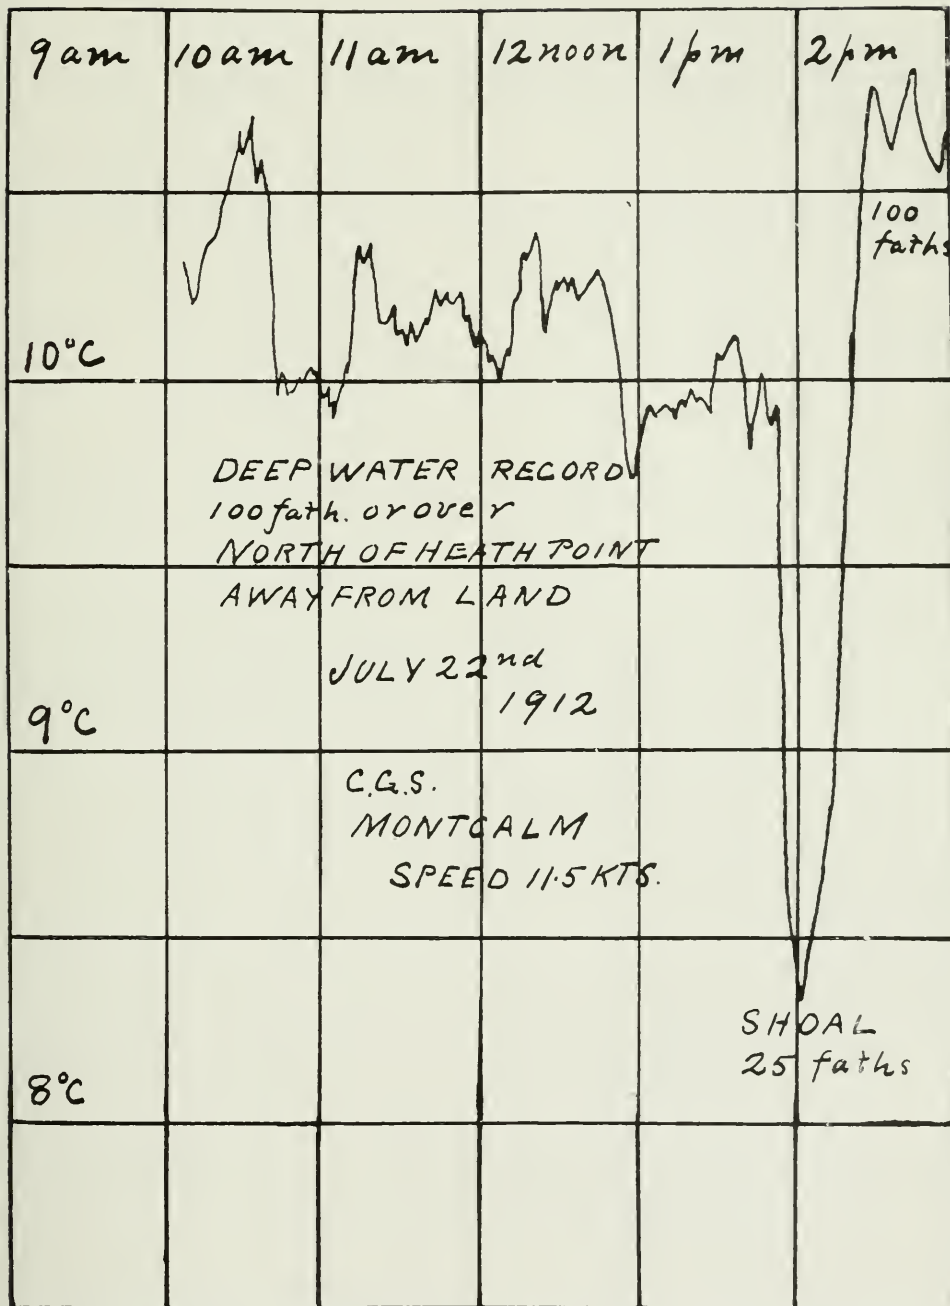 9am 10am 11am 12noon 1pm 2pm
100
faths
10°C
DEEP WATER RECORD
100 fath. or over
NORTH OF HEATH POINT
AWAY FROM LAND
JULY 22nd
1912
9°C
C.G.S.
MONTCALM
SPEED 11.5 KTS.
SHOAL
25 faths
8°C